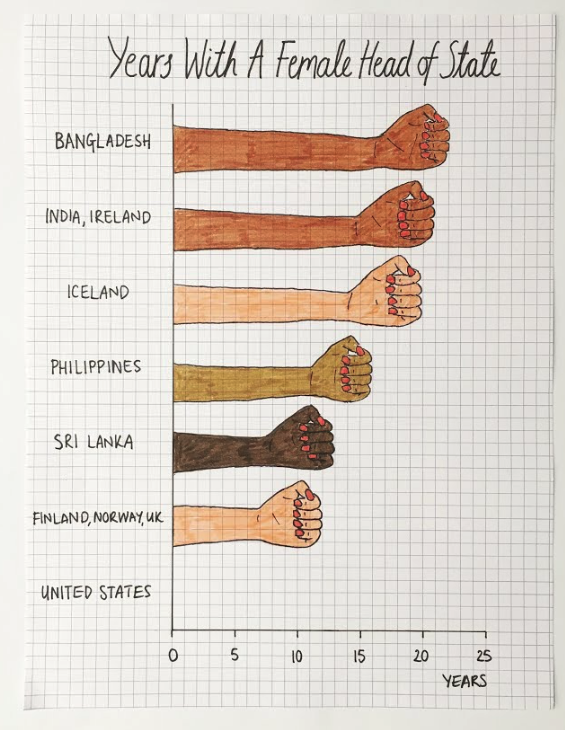 Years With A Female Head of State
BANGLADESH
INDIA, IRELAND
ICELAND
PHILIPPINES
SRI LANKA
FINLAND, NORWAY, UK
UNITED STATES
0 5 10 15 20 25
YEARS